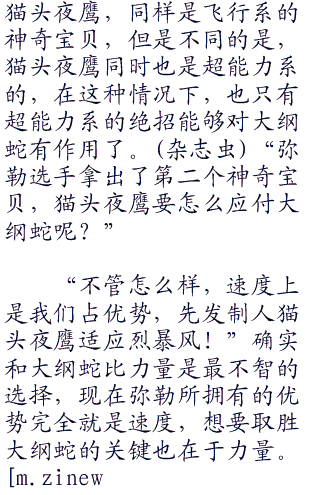 猫头夜鹰，同样是飞行系的
神奇宝贝，但是不同的是，
猫头夜鹰同时也是超能力系
的，在这种情况下，也只有
超能力系的绝招能够对大纲
蛇有作用了。(杂志虫)“弥
勒选手拿出了第二个神奇宝
贝，猫头夜鹰要怎么应付大
纲蛇呢？”
“不管怎么样，速度上
是我们占优势，先发制人猫
头夜鹰适应烈暴风！”确实
和大纲蛇比力量是最不智的
选择，现在弥勒所拥有的优
势完全就是速度，想要取胜
大纲蛇的关键也在于力量。
[m.zinew